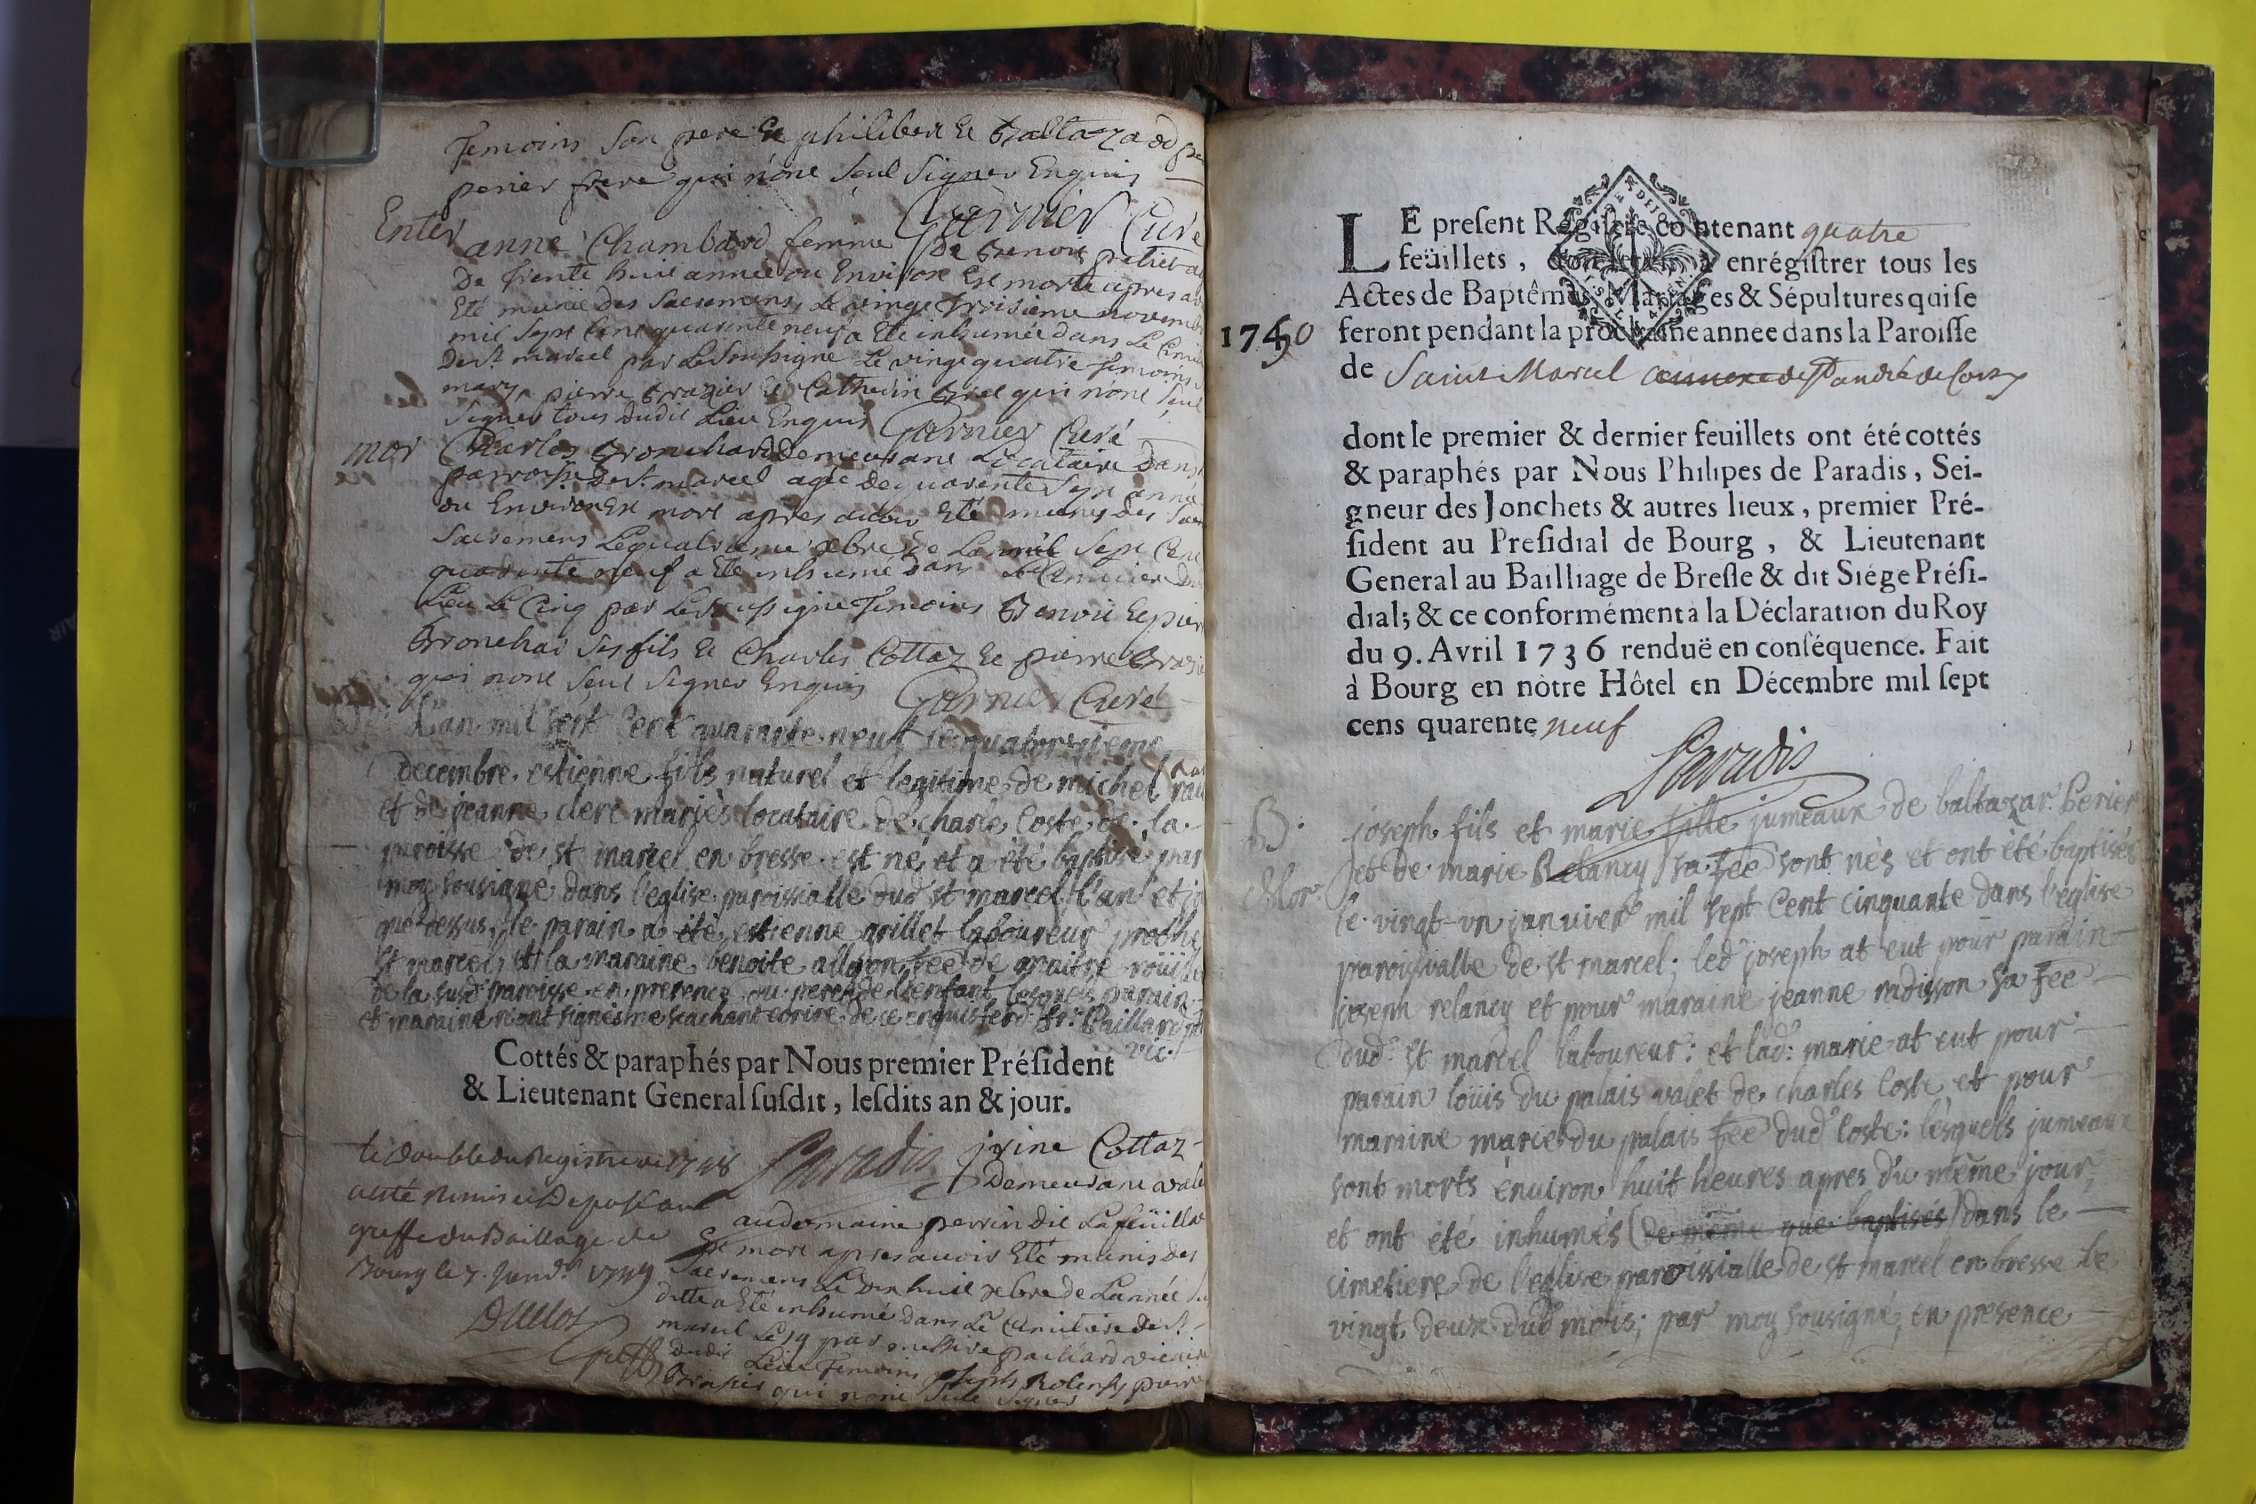 Temoins Son pere Et philibert Et Baltazard
perier frere qui n'ont Seul Signer Enquis
Garnier Curé
Enter anne Chambard femme De Benoit
De Trente huit annee ou Environt Est morte apres a
Eté munie des Sacremens Le vingt Troisieme novemb
mil Sept Cent quarente neuf a Eté inhumée dans Le Cimi
De St marcel par Le Soussigné Le vingt quatre Temoins
mary pierre Brazier Et Catherin qui n'ont Seul
Signer tous dudit Lieu Enquis Garnier Curé
mor Charles Bronchard demeurant Locataire Dans
parroisse De St marcel agée De quarente Sept anné
ou Environ Est mort apres avoir Eté munis des
Sacremens Le quatrieme xbre de Lannée Sept Cent
quarente neuf a Eté inhumé dans Le Cimitiere Du
Lieu Le Cinq par Le Soussigné Temoins Benoit Et pier
Bronchar Ses fils Et Charles Cottaz Et pierre Brazie
qui n'ont Seul Signer Enquis Garnier Curé
L'an mil sept Cent quarante neuf le quatorzieme
decembre, estienne fils naturel et legitime de michel
et de jeanne clerc mariés locataire de charle Coste de la
paroisse de st marcel en bresse est né, et a été baptisé par
moy sousigné dans l'eglise paroissialle dud st marcel l'an et jo
que dessus, le parain a été estienne grillet laboureur proche
St marcel, et la maraine benoite fee de
de la susd paroisse en presence du pere de l'enfant lesquels parain
et maraine n'ont signés ne scachant ecrire de ce enquis Sr. Paillard
vic.
Cottés & paraphés par Nous premier Président
& Lieutenant General susdit, lesdits an & jour.
le double du Registre de 1748 Paradis
a été Remis et Deposé au
greffe du Baillage de
Bourg le 7. Janvr. 1749
Duclos
Greff
Cottaz
Demeurant vale
au domaine perrin dit Lafeüilla
Est mort apres avoir Eté munis des
Sacremens Le dix huit xbre de Lannée Su
ditte a Eté inhumé dans Le Cimitiere de St
marcel Le 19 par messire paillard vicaire
dudit Lieu Temoins Joseph pierre
Brazier qui n'ont Seul Signer
LE present Registre contenant quatre
feüillets, à enrégistrer tous les
Actes de Baptêmes, Mariages & Sépultures qui se
1750 feront pendant la prochaine annee dans la Paroisse
de Saint Marcel annexe de St andré de Corcy
dont le premier & dernier feuillets ont été cottés
& paraphés par Nous Philipes de Paradis, Sei-
gneur des Jonchets & autres lieux, premier Pré-
sident au Presidial de Bourg, & Lieutenant
General au Bailliage de Bresse & dit Siége Présі-
dial; & ce conformément à la Déclaration du Roy
du 9. Avril 1736 renduë en conséquence. Fait
à Bourg en nôtre Hôtel en Décembre mil sept
cens quarente neuf
Paradis
B. joseph fils et marie fille jumeaux de baltazar Perier
et de marie Relancy sa fee sont nés et ont été baptisés
Mor. le vingt-un janvier mil sept Cent cinquante dans l'eglise
paroissialle de st marcel; led joseph at eut pour parain
joseph relancy et pour maraine jeanne radisson sa fee
dud. st marcel laboureur: et lad: marie at eut pour
parain loüis du palais valet de charles Coste et pour
maraine marie du palais fee dud Coste: lesquels jumeaux
sont morts environ huit heures apres du même jour,
et ont été inhumés (de même que baptisés) dans le
cimetiere de l'eglise paroissialle de st marcel en bresse le
vingt deux dud mois; par moy sousigné, en presence